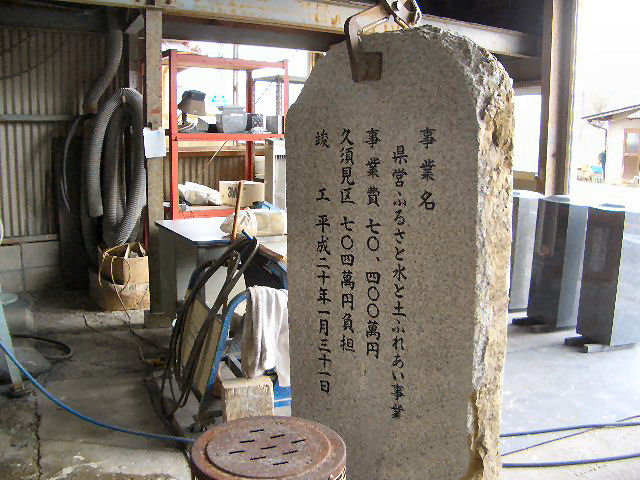 事業名
県営ふるさと水と土ふれあい事業
事業費 七〇、四〇〇萬円
久須見区 七〇四萬円負担
竣工 平成二十年一月三十一日